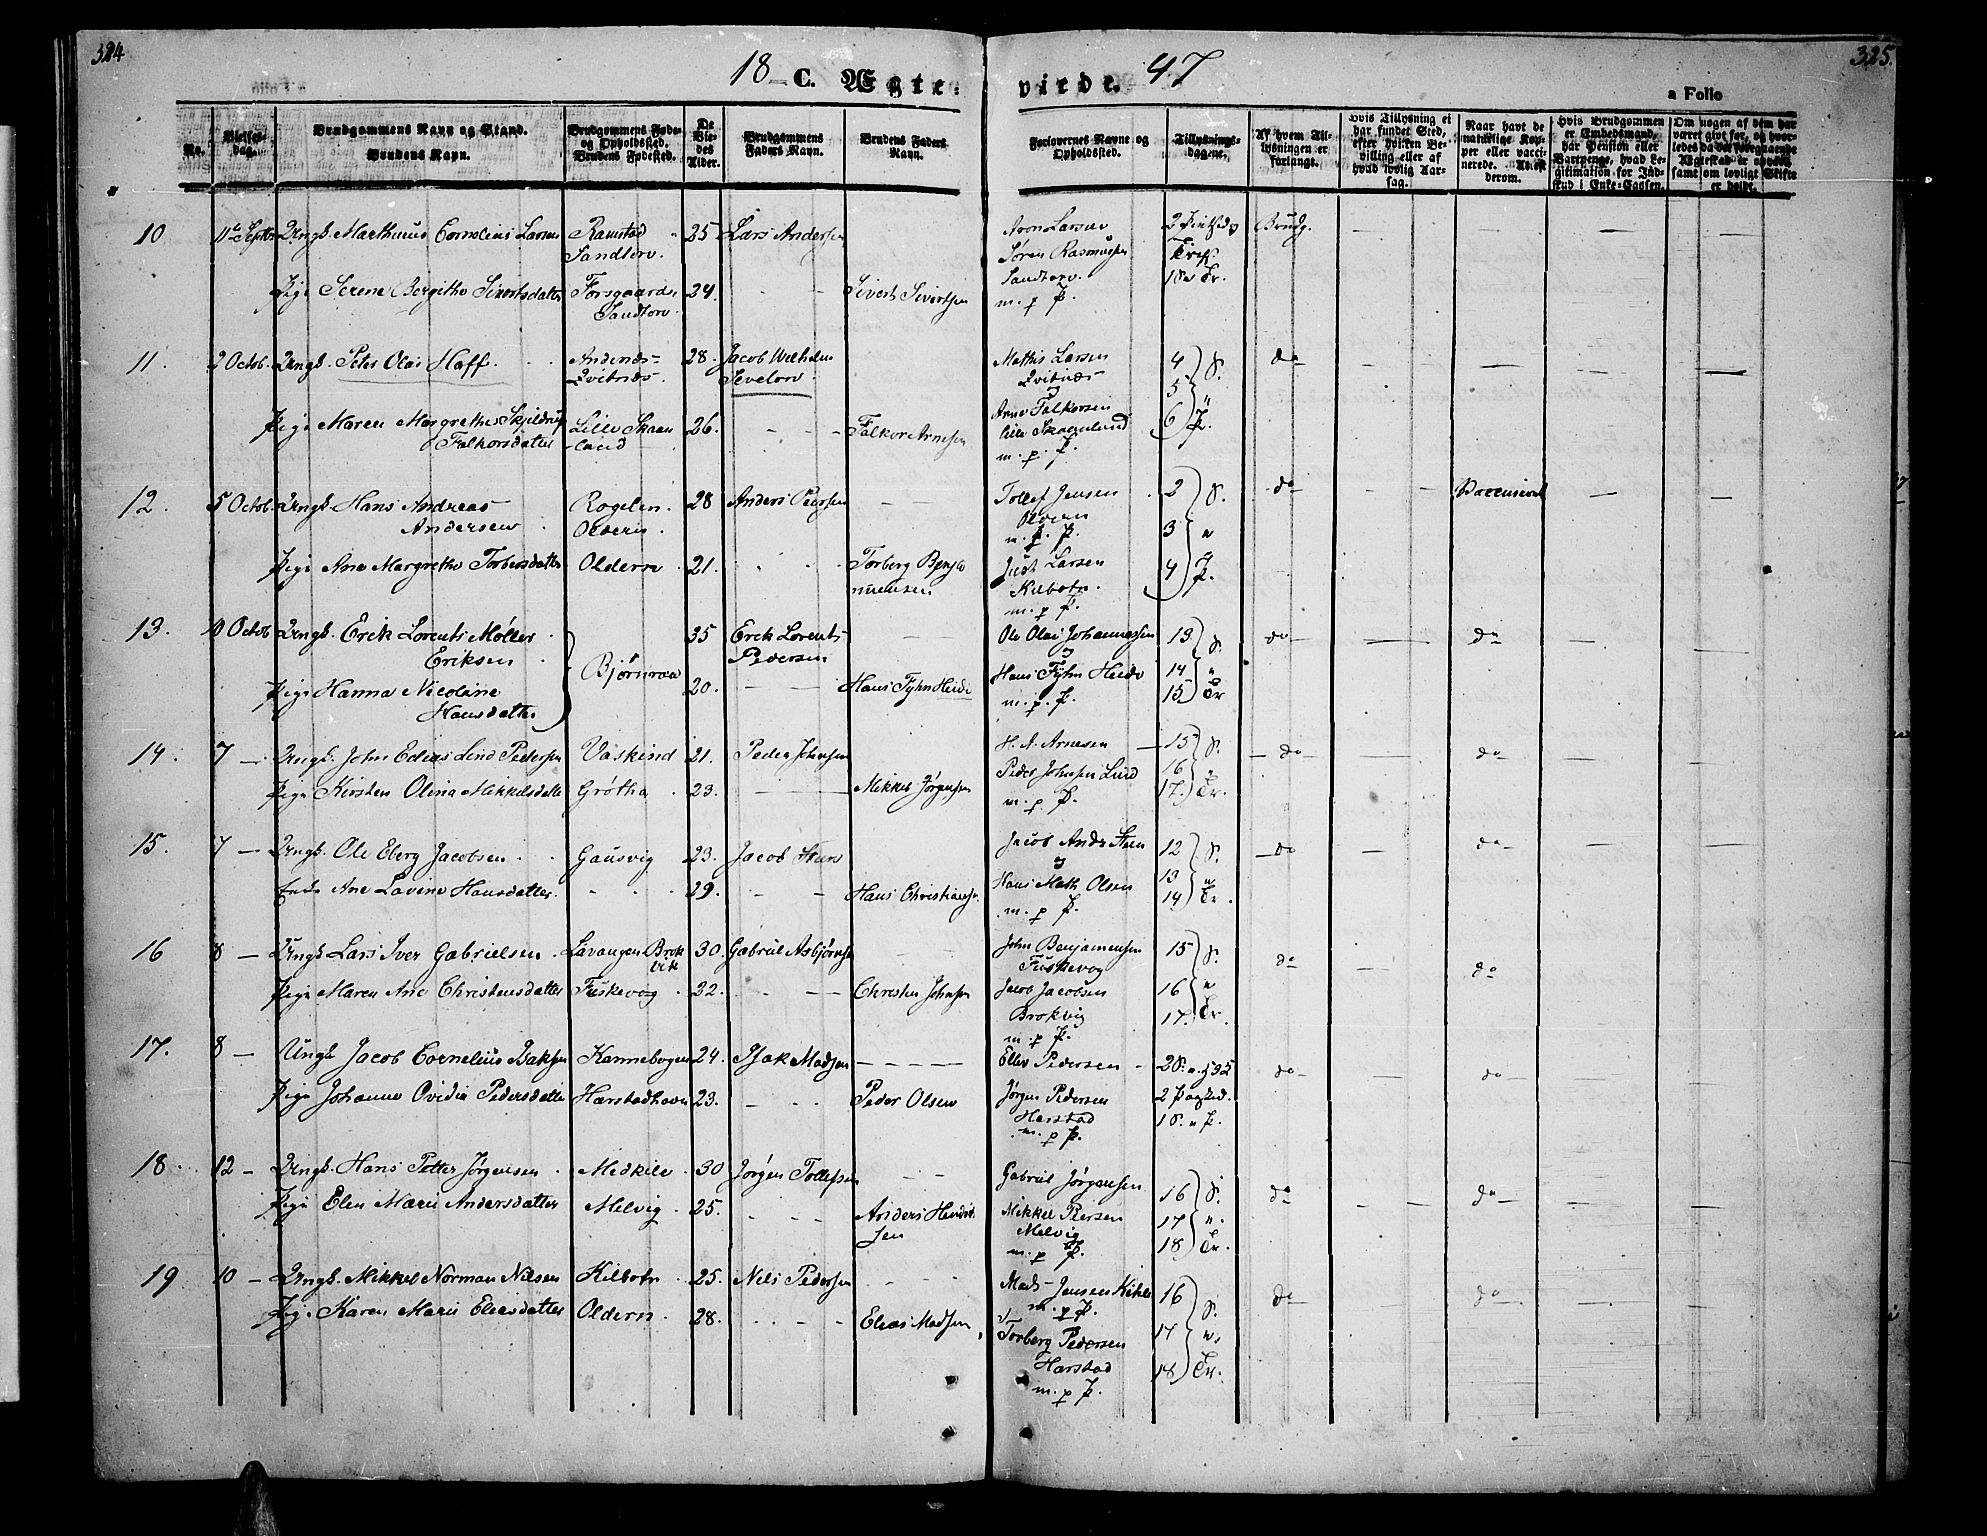 324
18 C. Ægte-
virde. 47
325.
a Folio
No.
Vielses-dag.
Brudgommens Navn og Stand.
Brudens Navn.
Brudgommens Føde- og Opholdssted.
Brudens Fødested.
De Viedes Alder.
Brudgommens Faders Navn.
Brudens Faders Navn.
Forlovernes Navne og Opholdssted.
Tillysnings-dagene.
Af hvem Tillysningen er forlangt.
Hvis Tillysning ei har fundet Sted, efter hvilken Bevilling eller af hvad lovlig Aarsag.
Naar havt de naturlige Kopper eller vaccinerede. Attest derom.
Hvis Brudgommen er Embedsmand, har Pension eller Vartpenge, hvad Legitimation for Indskud i Enke-Cassen.
Om nogen af dem har været givt før, og hvorledes da det foregaaende Ægteskab er ophævet samt om lovligt Skifte er holdt.
10 11te Septbr Ungk. Marthinus Cornelius Larsen Ramstad 25 Lars Andersen Aron Larsen Brudg.
Sandtorv. Søren Rasmussen
Pige Serene Bergithe Sivertsdatter Forsgaard 24. Sivert Sivertsen Sandtorv.
Sandtorv. m. p. P.
11. 2 Octob. Ungk. Peter Olai Hoff Andenæs 28. Jacob Wilhelm Mathis Larsen 4 S. do
Qvitnæs. Sevelov Qvitnæs 5
Pige Maren Margrethe Skjeldrup Lille Skaan- 26. Falkor Arnesen Arne Falkorsen 6 P.
Falkorsdatter land Lille Skaanland
m. p. P.
12. 5 Octob. Ungk Hans Andreas Rogelen 28 Anders Pedersen Tollef Jensen 2 S. do Vaccineret
Andersen Olderen. Olderen 3 "
m. p. P.
Pige Ane Margrethe Torbersdatter Oldern 21. Torberg Benja- Just Larsen 4 P.
minsen Kilbotn.
m. p. P.
13. 10 Octob Ungk. Erik Lorents Møller 35 Erik Lorents Ole Olai Johannessen 13 S. do do
Eriksen Bjørnraa Pedersen
Pige Hanna Nicoline 20. Hans Fyhn Heide Hans Fyhn Heide 14 "
Hansdatter m. p. P. 15 Tr
14. 7 Ungk. John Edias Lind Pedersen Vaskind 21. Peder Johnsen H. A. Arnesen 15 S. do do
Pige Kirsten Olina Mikkelsdatter Grøtha 23. Mikkel Jørgensen Peder Johnsen Lind 16 "
m. p. P. 17. Tr.
15. 7 Ungk. Ole Eberg Jacobsen Gausvig 23. Jacob Steen Jacob Andr Steen 12 S. do do
Enke Ane Lavine Hansdatter. 29. Hans Christiansen Hans Math Olsen 13 "
m. p. P. 14 Tr.
16 8 Ungk Lars Iver Gabrielsen Lavangen Brok 30. Gabriel Asbjørnsen John Benjaminsen 15 S. do do
vik Fuskevog
Pige Maren Ane Christensdatter Fuskevog 32. Christen Johnsen Jacob Jacobsen 16 "
Brokvig 17. Tr.
m. p. P.
17. 8 Ungk Jacob Cornelius Isaksen Kannebogen 24. Isak Madsen Ellev Pedersen do do
Pige Johanne Ovidia Pedersdatter Harstadhavn 23. Peder Olsen Jørgen Pedersen
Harstad
m. p. P.
18. 12 Ungk. Hans Petter Jørgensen Medkile 30 Jørgen Tollefsen Gabriel Jørgensen 16 S. do do
Pige Elen Marie Andersdatter Melvig 25. Anders Hendrik Mikkel Pedersen 17 "
sen Melvig 18 Tr.
m. p. P.
19 10 Ungk. Mikkel Norman Nilsen Kilbotn 25. Nils Pedersen Mads Jensen Kihle 16 S. do do
m. p. P.
Pige Karen Marie Eliasdatter Oldern. 28. Elias Madsen Torberg Pedersen 17 "
Harstad 18 Tr.
m. p. P.